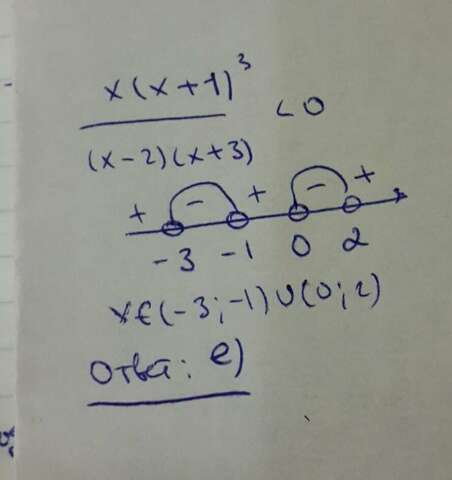 x(x+1)³
< 0
(x-2)(x+3)
+ - + - +
-3 -1 0 2
x∈(-3;-1)∪(0;2)
Ответ: e)